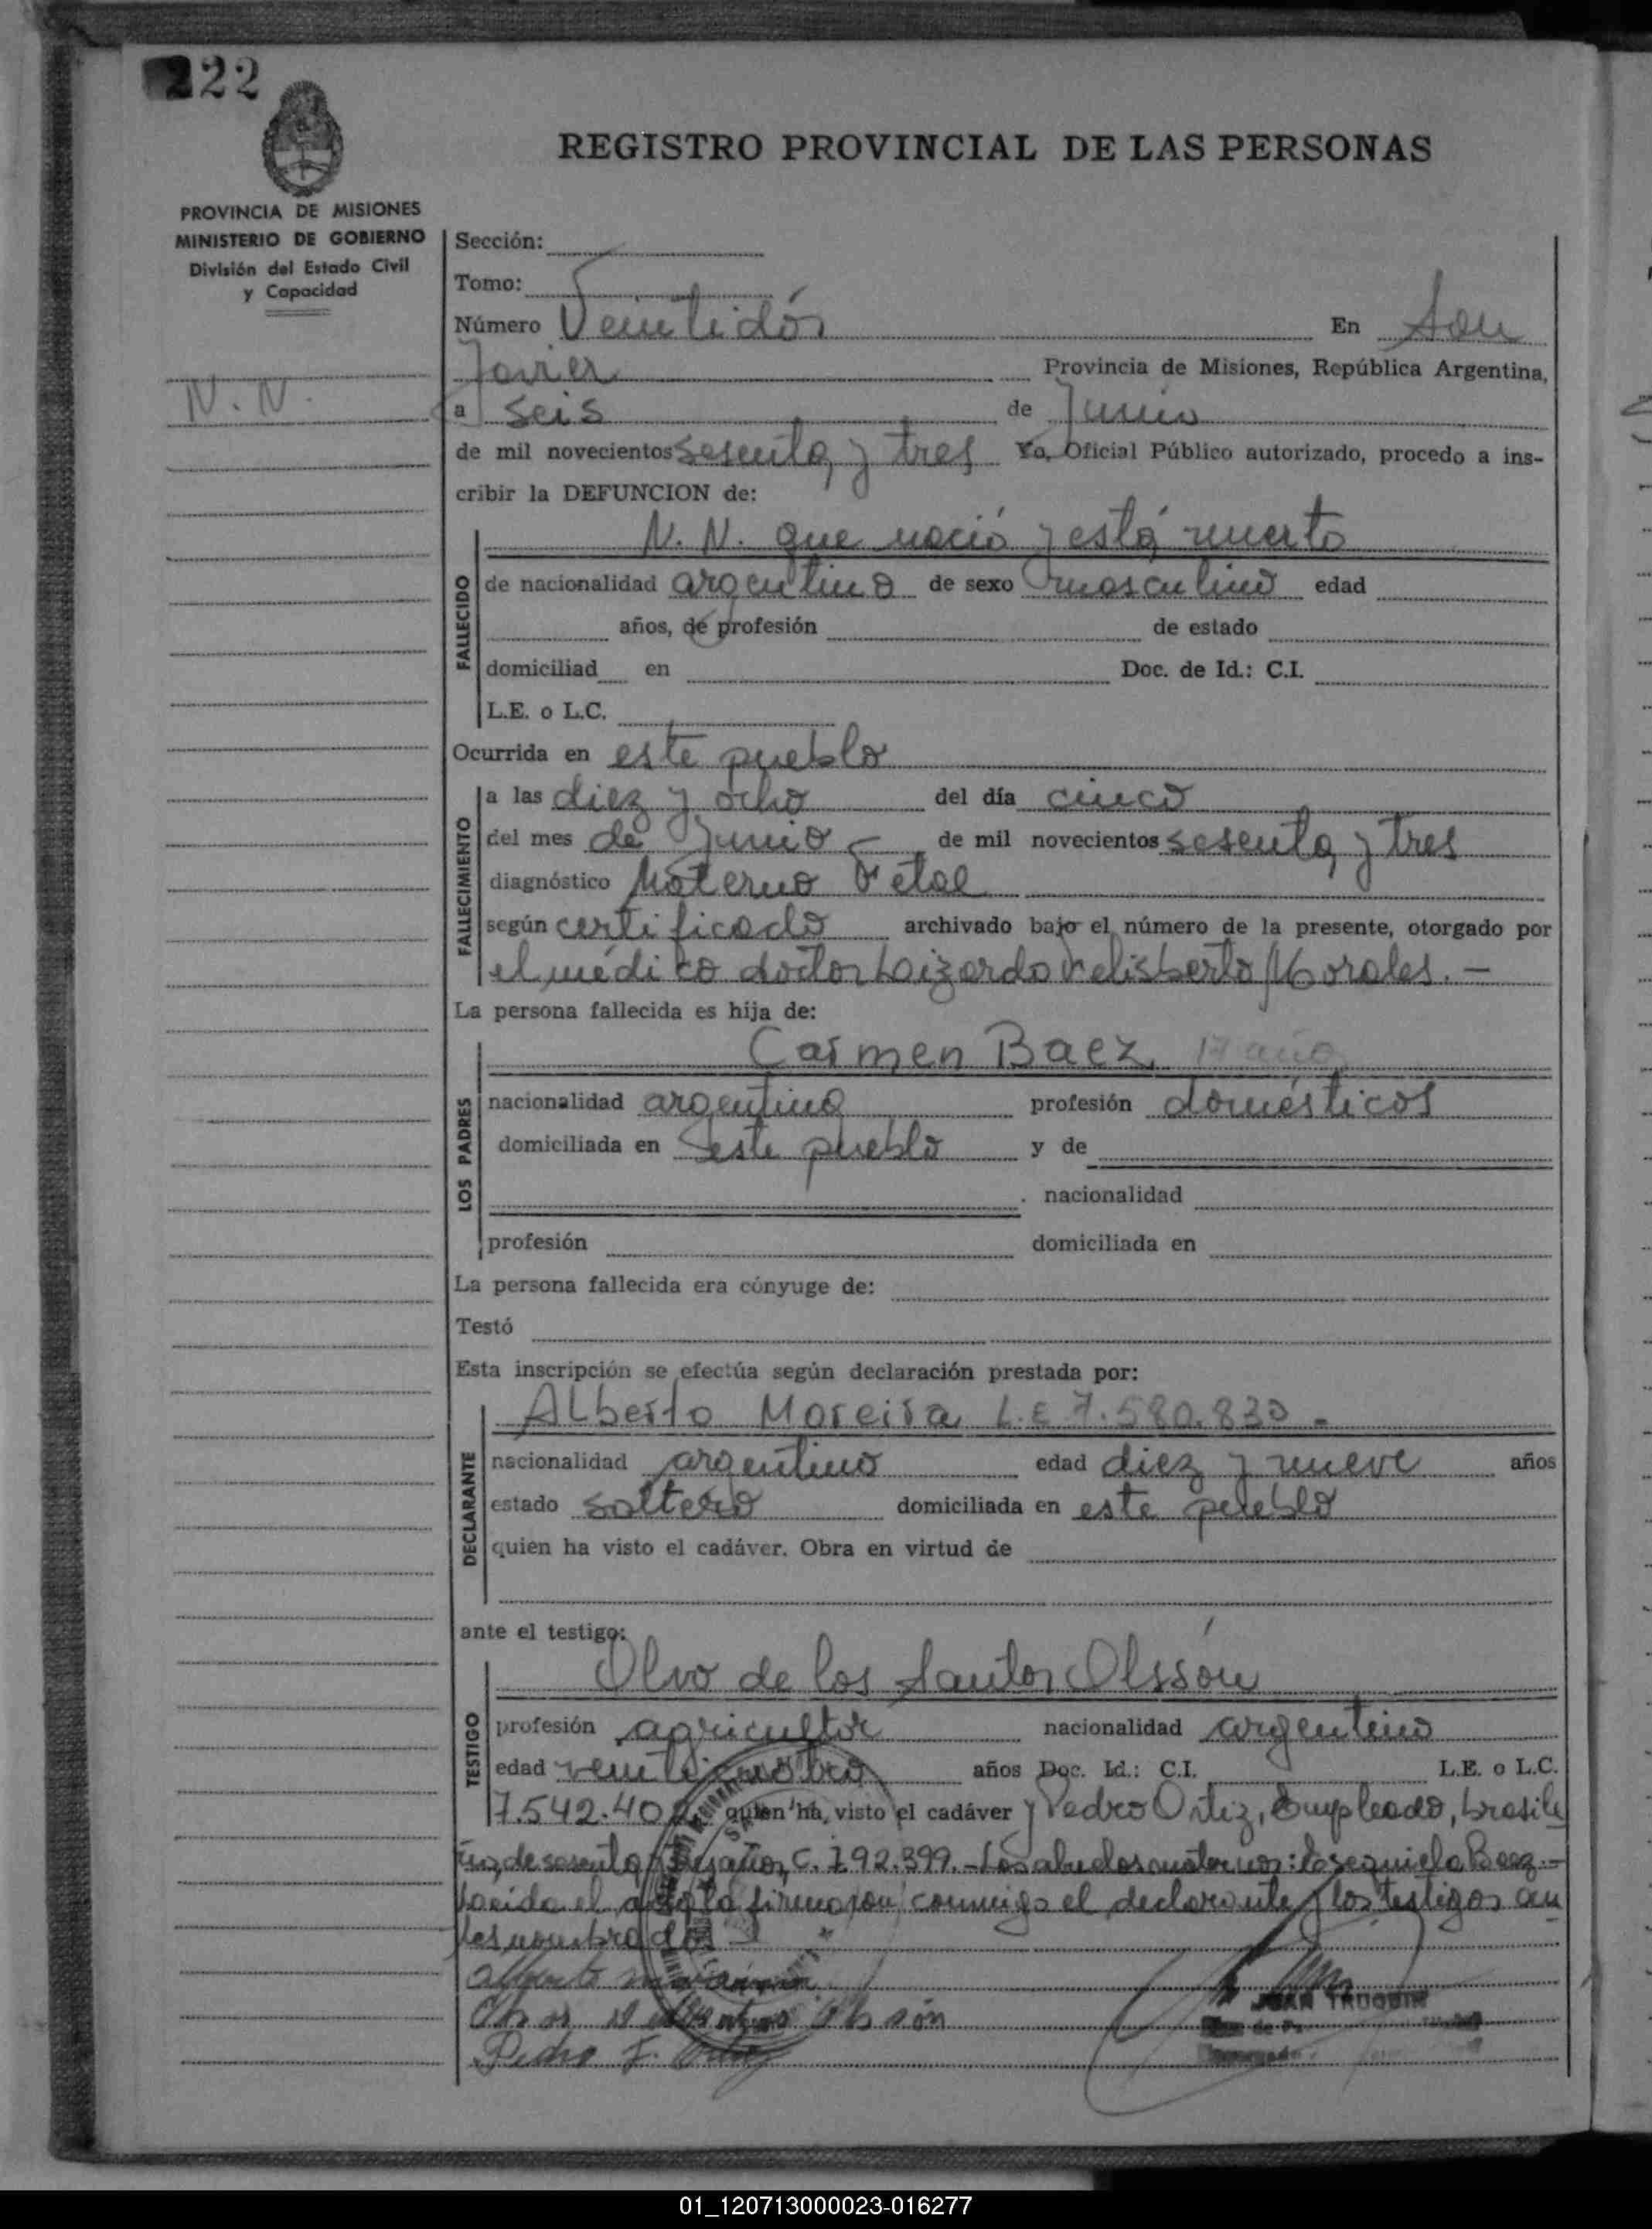 22
REGISTRO PROVINCIAL DE LAS PERSONAS
PROVINCIA DE MISIONES
MINISTERIO DE GOBIERNO
División del Estado Civil
y Capacidad
N. N.
Sección:
Tomo:
Número Veintidós En San
Javier Provincia de Misiones, República Argentina,
a seis de Junio
de mil novecientos sesenta y tres Yo, Oficial Público autorizado, procedo a ins-
cribir la DEFUNCION de:
N. N. que nació y está muerto
FALLECIDO
de nacionalidad argentino de sexo masculino edad
años, de profesión de estado
domiciliad en Doc. de Id.: C.I.
L.E. o L.C.
Ocurrida en este pueblo
FALLECIMIENTO
a las diez y ocho del día cinco
del mes de Junio - de mil novecientos sesenta y tres
diagnóstico Materno Fetal
según certificado archivado bajo el número de la presente, otorgado por
el médico doctor Felisberto Morales. -
La persona fallecida es hija de:
Carmen Baez, 17 años
LOS PADRES
nacionalidad argentina profesión domésticos
domiciliada en este pueblo y de
nacionalidad
profesión domiciliada en
La persona fallecida era cónyuge de:
Testó
Esta inscripción se efectúa según declaración prestada por:
Alberto Moreira L.E 7.580.830 -
DECLARANTE
nacionalidad argentino edad diez y nueve años
estado soltero domiciliada en este pueblo
quien ha visto el cadáver. Obra en virtud de
ante el testigo:
Olvo de los Santos Olssón
TESTIGO
profesión agricultor nacionalidad argentino
edad años Doc. Id.: C.I. L.E. o L.C.
7.542.40 quien ha visto el cadáver y Pedro Ortiz, Empleado, brasile
ño, de sesenta y años, C. 192.399. - Los abuelos maternos: Baez. -
el acta la firmaron conmigo el declarante y los testigos an
tes nombrados
Olssón
Pedro F. Ortiz
JUAN TRUQUIN
01_120713000023-016277